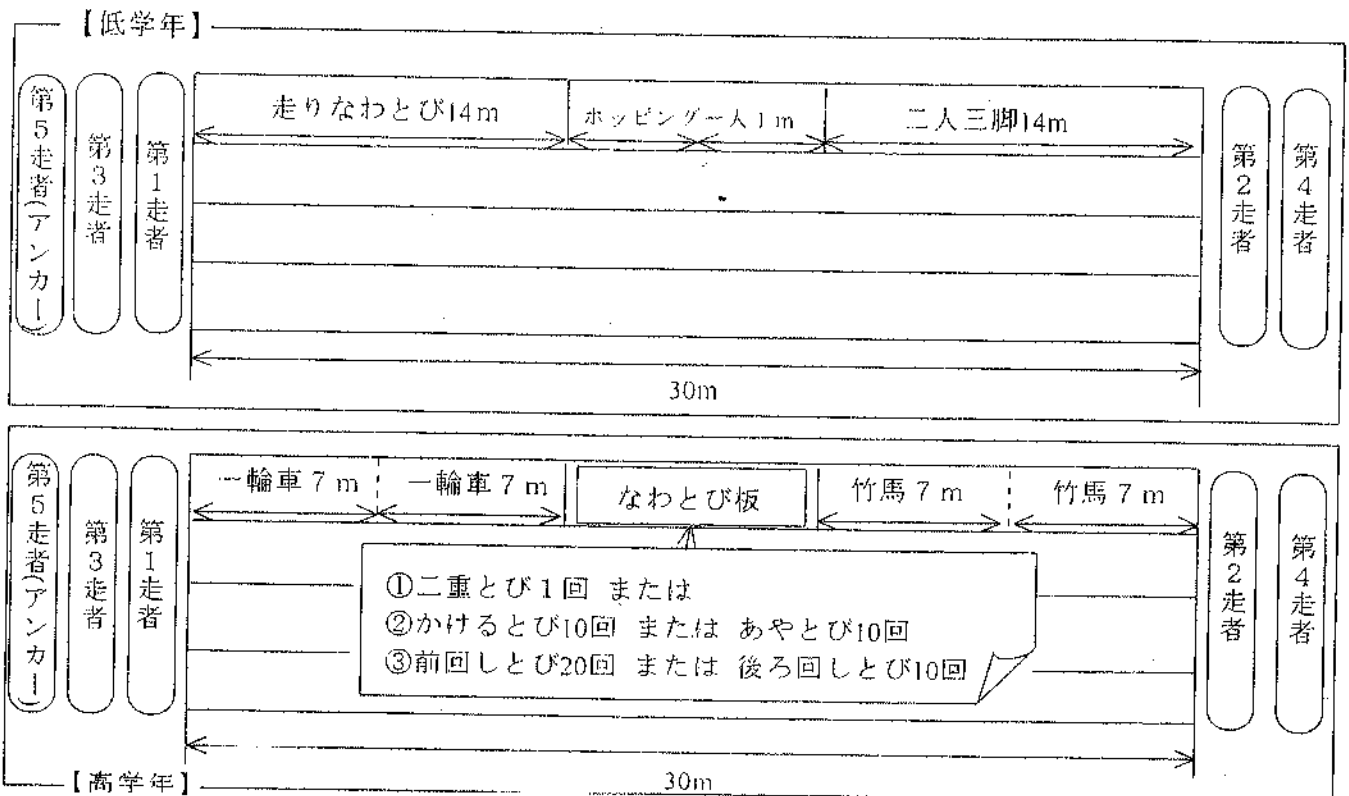 【低学年】
第5走者(アンカー)
第3走者
第1走者
走りなわとび14m
ホッピング一人1m
二人三脚14m
第2走者
第4走者
30m
第5走者(アンカー)
第3走者
第1走者
一輪車7m
一輪車7m
なわとび板
竹馬7m
竹馬7m
第2走者
第4走者
①二重とび1回 または
②かけるとび10回 または あやとび10回
③前回しとび20回 または 後ろ回しとび10回
30m
【高学年】